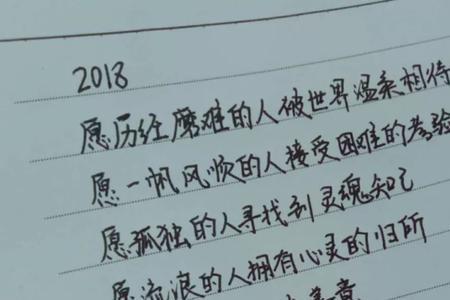 2018
愿历经磨难的人被世界温柔相待
愿一帆风顺的人接受困难的考验
愿孤独的人寻找到灵魂知己
愿流浪的人拥有心灵的归所